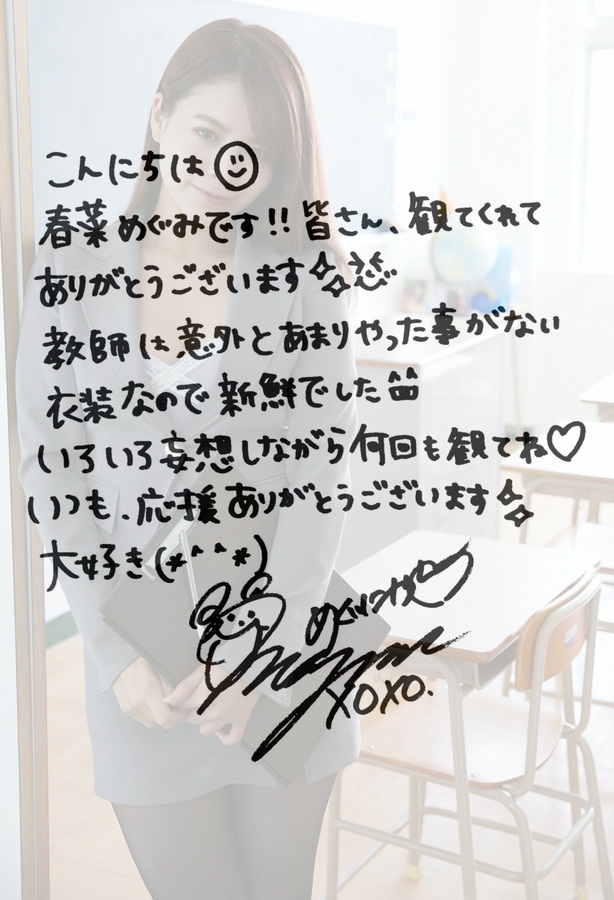 こんにちは
春菜めぐみです!! 皆さん、観てくれて
ありがとうございます
教師は意外とあまりやった事がない
衣装なので新鮮でした
いろいろ妄想しながら何回も観てね♡
いつも、応援ありがとうございます
大好き(*^^*)
XOXO.